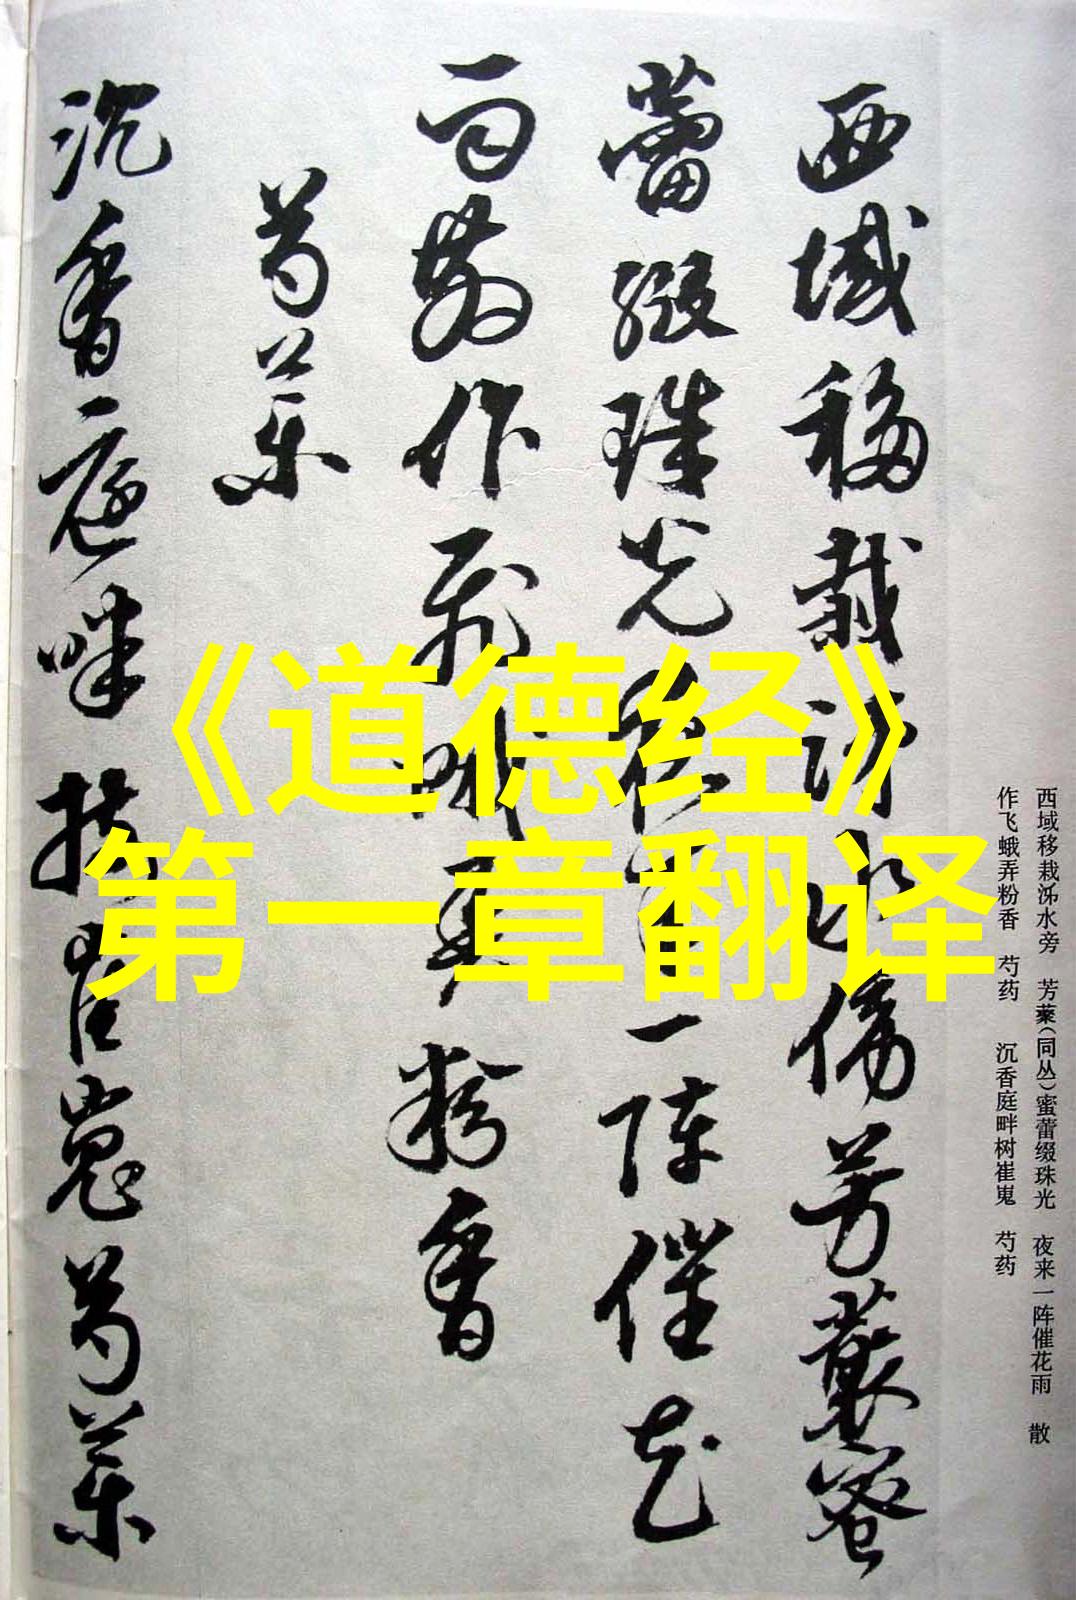 《道德经》
第一章翻译
西域移栽泲水傍芳藂蜜
蕾綴珠光夜来一陣催花
雨散作飛蛾弄粉香
芍藥
沉香庭畔樹崔嵬芍藥
西域移栽泲水旁　芳藂（同丛）蜜蕾缀珠光　夜来一阵催花雨　散
作飞蛾弄粉香　芍药　沉香庭畔树崔嵬　芍药